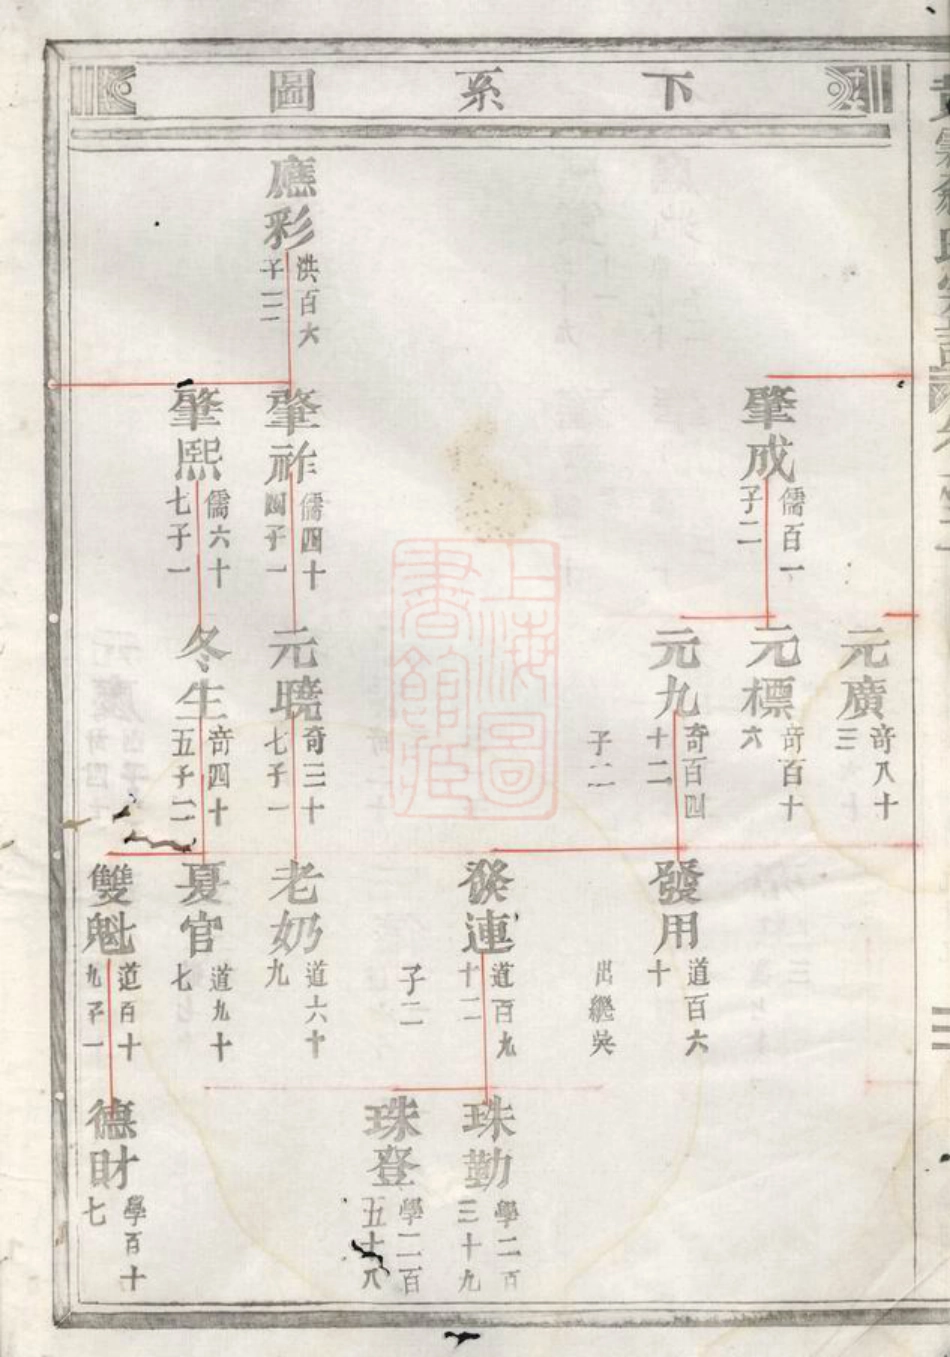 下系圖
應彩
洪百六
子三
肇成
儒百一
子二
肇祚
儒四十
四子一
肇熙
儒六十
七子一
元廣
奇八十
三
元標
奇百十
六
元九
奇百四
十二
子二
元曉
奇三十
七子一
冬生
奇四十
五子二
發用
道百六
十
出繼吳
發連
道百九
十二
子二
老奶
道六十
九
夏官
道九十
七
雙魁
道百十
九子一
珠勤
學二百
三十九
珠登
學二百
五十八
德財
學百十
七
上海圖
書館藏